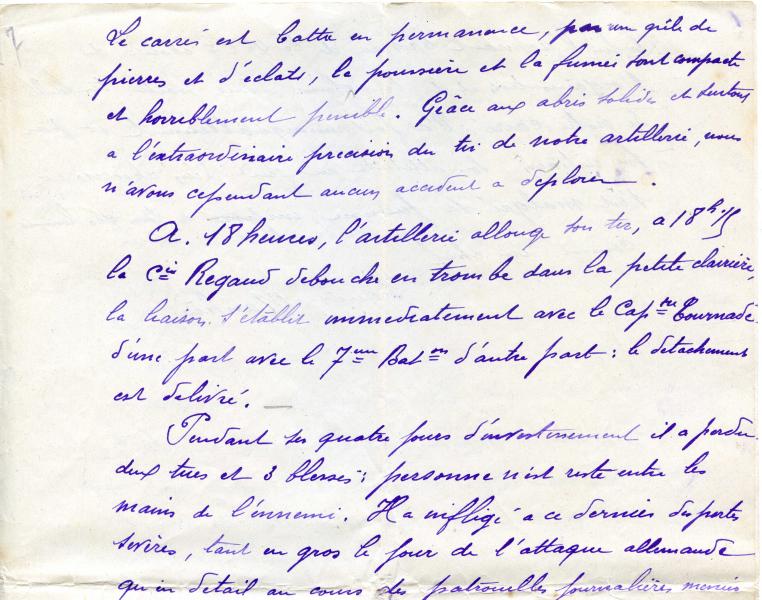 7
Le carrés est battu en permanance, par un grêle de
pierres et d'éclats, la poussière et la fumée sont compacte
et horriblement penible. Grâce aux abris solides et surtout
a l'extraordinaire precision du tir de notre artillerie, nous
n'avons cependant aucun accident a deplorer.
A. 18 heures, l'artillerie allonge son tir, a 18h.15
la Cie Regaud debouche en trombe dans la petite clairière,
la liaison s'établit immediatement avec le Cap. Tournade
d'une part avec le 7me Baton d'autre part : le detachement
est delivré. —
Pendant ses quatre jours d'investissement il a perdu
deux tues et 3 blesses ; personne n'est reste entre les
mains de l'énnemi. Il a infligé a ce dernier des pertes
sevères, tant en gros le jour de l'attaque allemande
qu'en detail au cours des patrouilles journalières menées